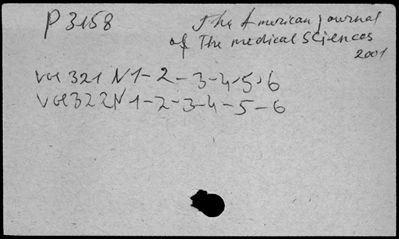 P3158
The American journal
of The medical Sciences
2001
Vol 321 N 1-2-3-4-5-6
Vol 322 N 1-2-3-4-5-6